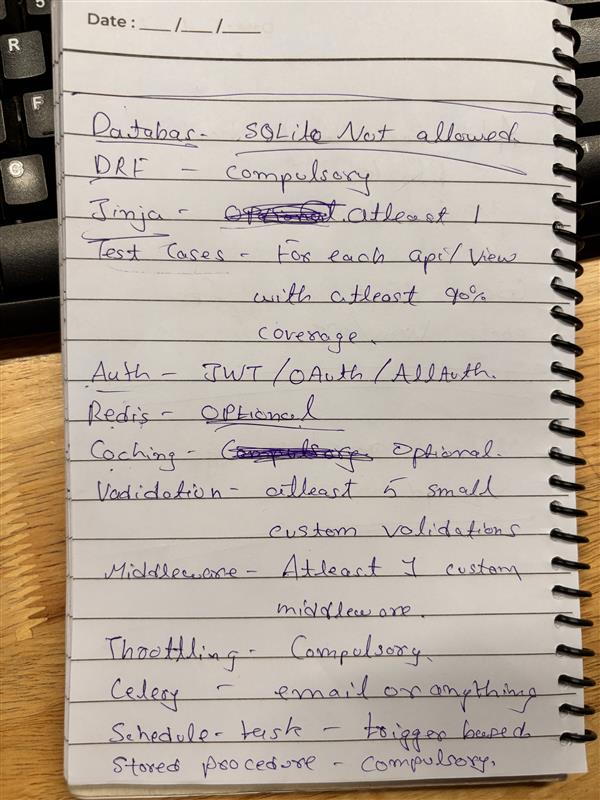 Date : ___ /___ /____
Databas - SQLite Not allowed
DRF - Compulsory
Jinja - atleast 1
Test Cases - For each api/View
with atleast 90%
coverage.
Auth - JWT / OAuth / AllAuth.
Redis - OPtional
Caching - Compulsory Optional.
Vadidation - atleast 5 small
custom validations
Middleware - Atleast 1 custom
middleware.
Throttling - Compulsory.
Celery - email or anything
Schedule - task - trigger based
Stored procedure - Compulsory.